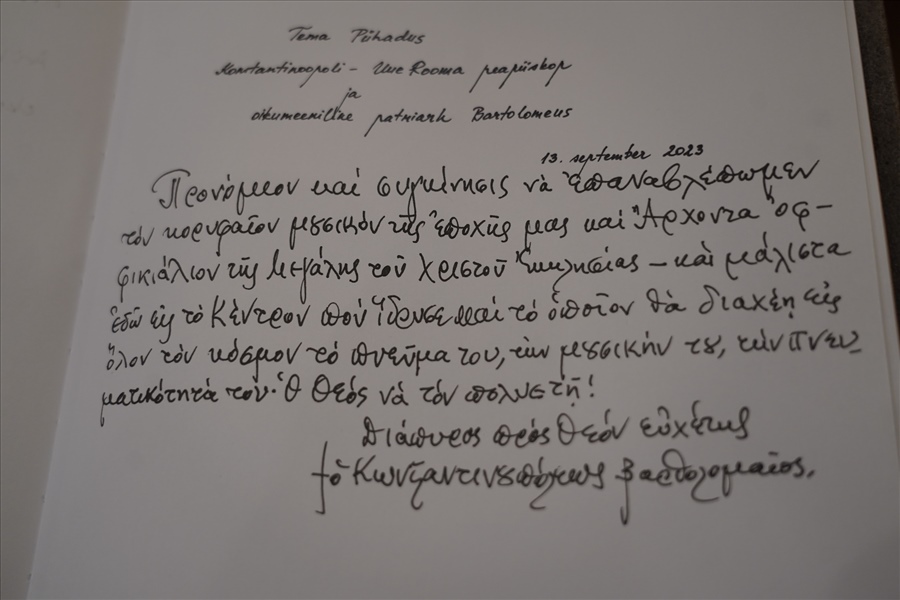 Tema Pühadus
Konstantinoopoli - Uue Rooma peapiiskop
ja
oikumeeniline patriarh Bartolomeus
13. september 2023
Προνόμιον καί συγκίνησις νά ἐπαναβλέπωμεν
τόν κορυφαῖον μουσικόν τῆς ἐποχῆς μας καί Ἄρχοντα ὀφ-
φικιάλιον τῆς Μεγάλης τοῦ Χριστοῦ Ἐκκλησίας – καί μάλιστα
ἐδῶ εἰς τό Κέντρον πού ἵδρυσε καί τό ὁποῖον θά διαχέῃ εἰς
ὅλον τόν κόσμον τό πνεῦμα του, τήν μουσικήν του, τήν πνευ-
ματικότητά του. Ὁ Θεός νά τόν πολυετῇ!
Διάπυρος πρός Θεόν εὐχέτης
† ὁ Κωνσταντινουπόλεως Βαρθολομαῖος.